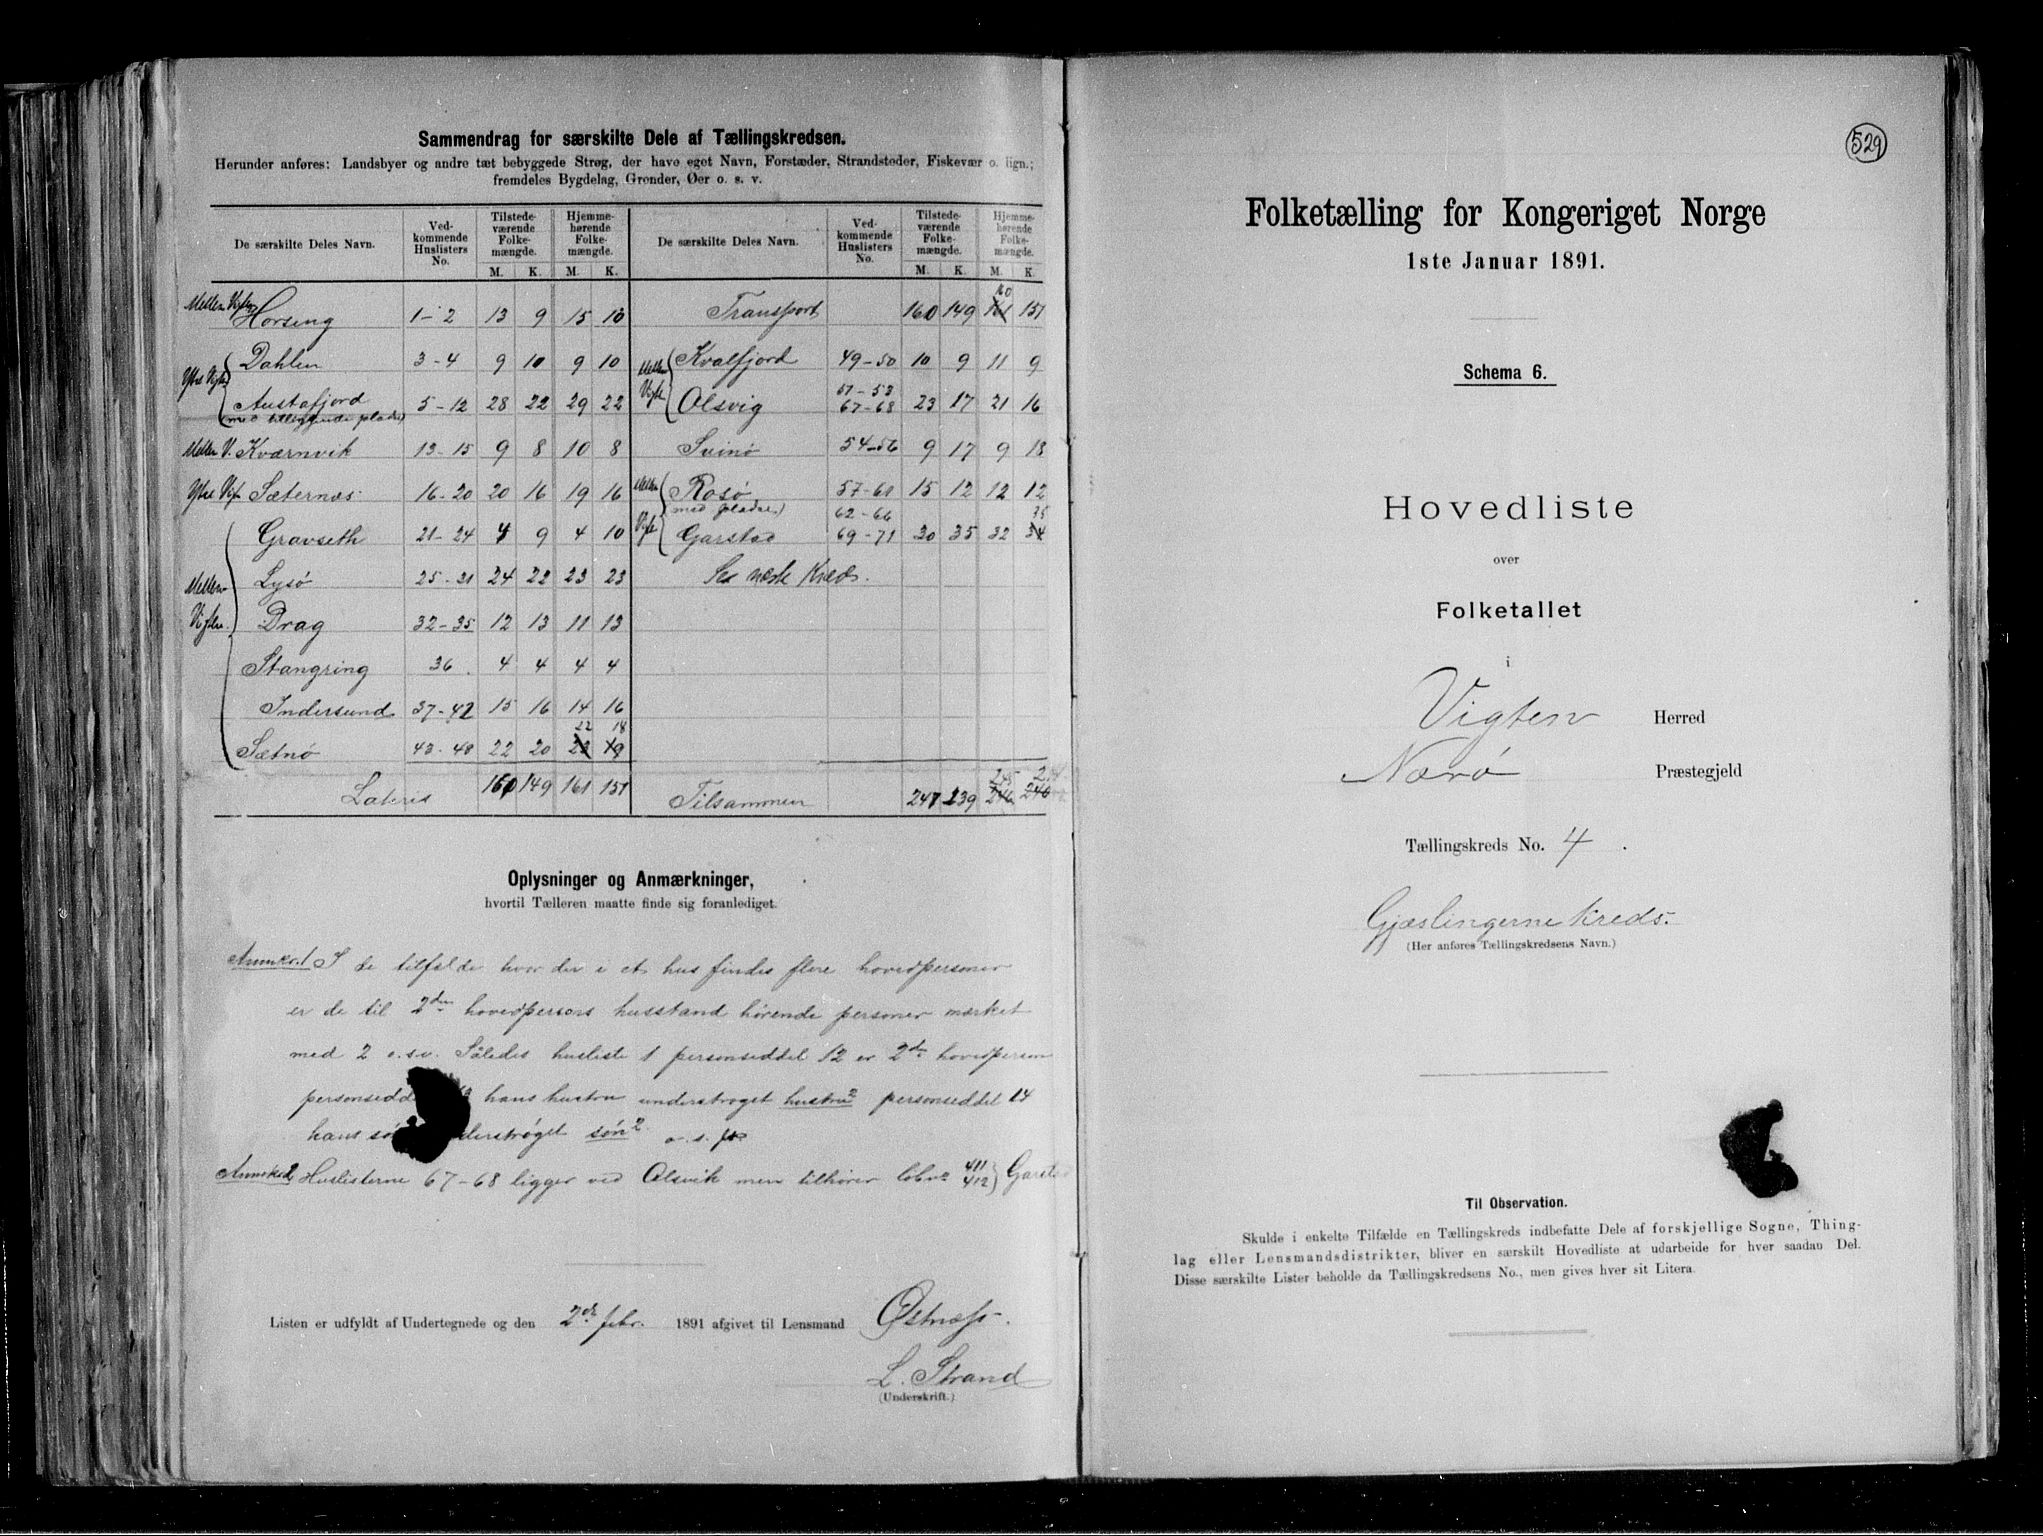 Sammendrag for særskilte Dele af Tællingskredsen.
Herunder anføres: Landsbyer og andre tæt bebyggede Strøg, der have eget Navn, Forstæder, Strandsteder, Fiskevær o. lign.;
fremdeles Bygdelag, Grender, Øer o. s. v.
De særskilte Deles Navn. Vedkommende Huslisters No. Tilstedeværende Folkemængde. M. K. Hjemmehørende Folkemængde. M. K.
Mellem Vigten Horseng 1-2 13 9 15 10
Ytre Vigten Dahlen 3-4 9 10 9 10
Austafjord 5-12 28 22 29 22
(med tilliggende pladse)
Mellem V. Kværnvik 13-15 9 8 10 8
Ytre Vigt Sæternæs 16-20 20 16 19 16
Gravseth 21-24 4 9 4 10
Mellem Lysø 25-31 24 22 23 23
Vigten Drag 32-35 12 13 11 13
Stangring 36 4 4 4 4
Indersund 37-42 15 16 14 16
22 18
Sætnø 43-48 22 20 23 19
Lateris 160 149 161 151
De særskilte Deles Navn. Vedkommende Huslisters No. Tilstedeværende Folkemængde. M. K. Hjemmehørende Folkemængde. M. K.
160
Transport 160 149 161 151
Mellem Kvalfjord 49-50 10 9 11 9
51-53
Vigten Olsvig 67-68 23 17 21 16
Svinø 54-56 9 17 9 18
Mellem Rosø 57-61 15 12 12 12
(med pladse) 62-66 35
Vigt Garstad 69-71 30 35 32 34
Se næste Kreds.
245
Tilsammen 247 239 246 240
Oplysninger og Anmærkninger,
hvortil Tælleren maatte finde sig foranlediget.
Anmkr. 1 I de tilfælde hvor der i et hus findes flere hovedpersoner
er de til 2den hovedpersons husstand hørende personer mærket
med 2 o.s.v. Således husliste 1 personseddel 12 er 2den hovedperson
personsedd hans hustru understrøget hustru 2 personseddel 14
hans sø derstrøget søn 2 o. s. fr
Anmrk. 2 Huslisterne 67-68 ligger ved Olsvik men tilhører løbno 411 412 } Garstad
Listen er udfyldt af Undertegnede og den 2de febr. 1891 afgivet til Lensmand Østnæss.
L. Strand
(Underskrift.)
529
Folketælling for Kongeriget Norge
1ste Januar 1891.
Schema 6.
Hovedliste
over
Folketallet
i
Vigten Herred
Nærø Præstegjeld
Tællingskreds No. 4.
Gjæslingerne kreds.
(Her anføres Tællingskredsens Navn.)
Til Observation.
Skulde i enkelte Tilfælde en Tællingskreds indbefatte Dele af forskjellige Sogne, Thing-
lag eller Lensmandsdistrikter, bliver en særskilt Hovedliste at udarbeide for hver saadan Del.
Disse særskilte Lister beholde da Tællingskredsens No., men gives hver sit Litera.